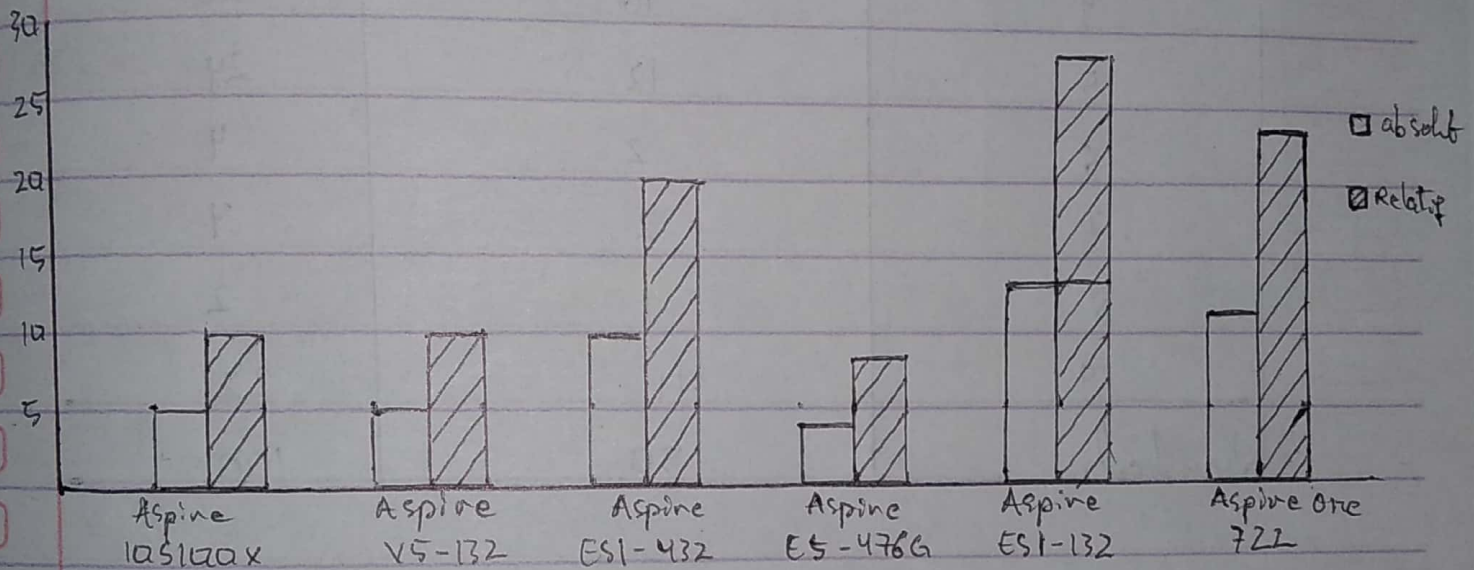 30
25
20
15
10
5
absolut
Relatif
Aspire
10S100X
Aspire
V5-132
Aspire
ES1-432
Aspire
E5-476G
Aspire
ES1-132
Aspire one
722